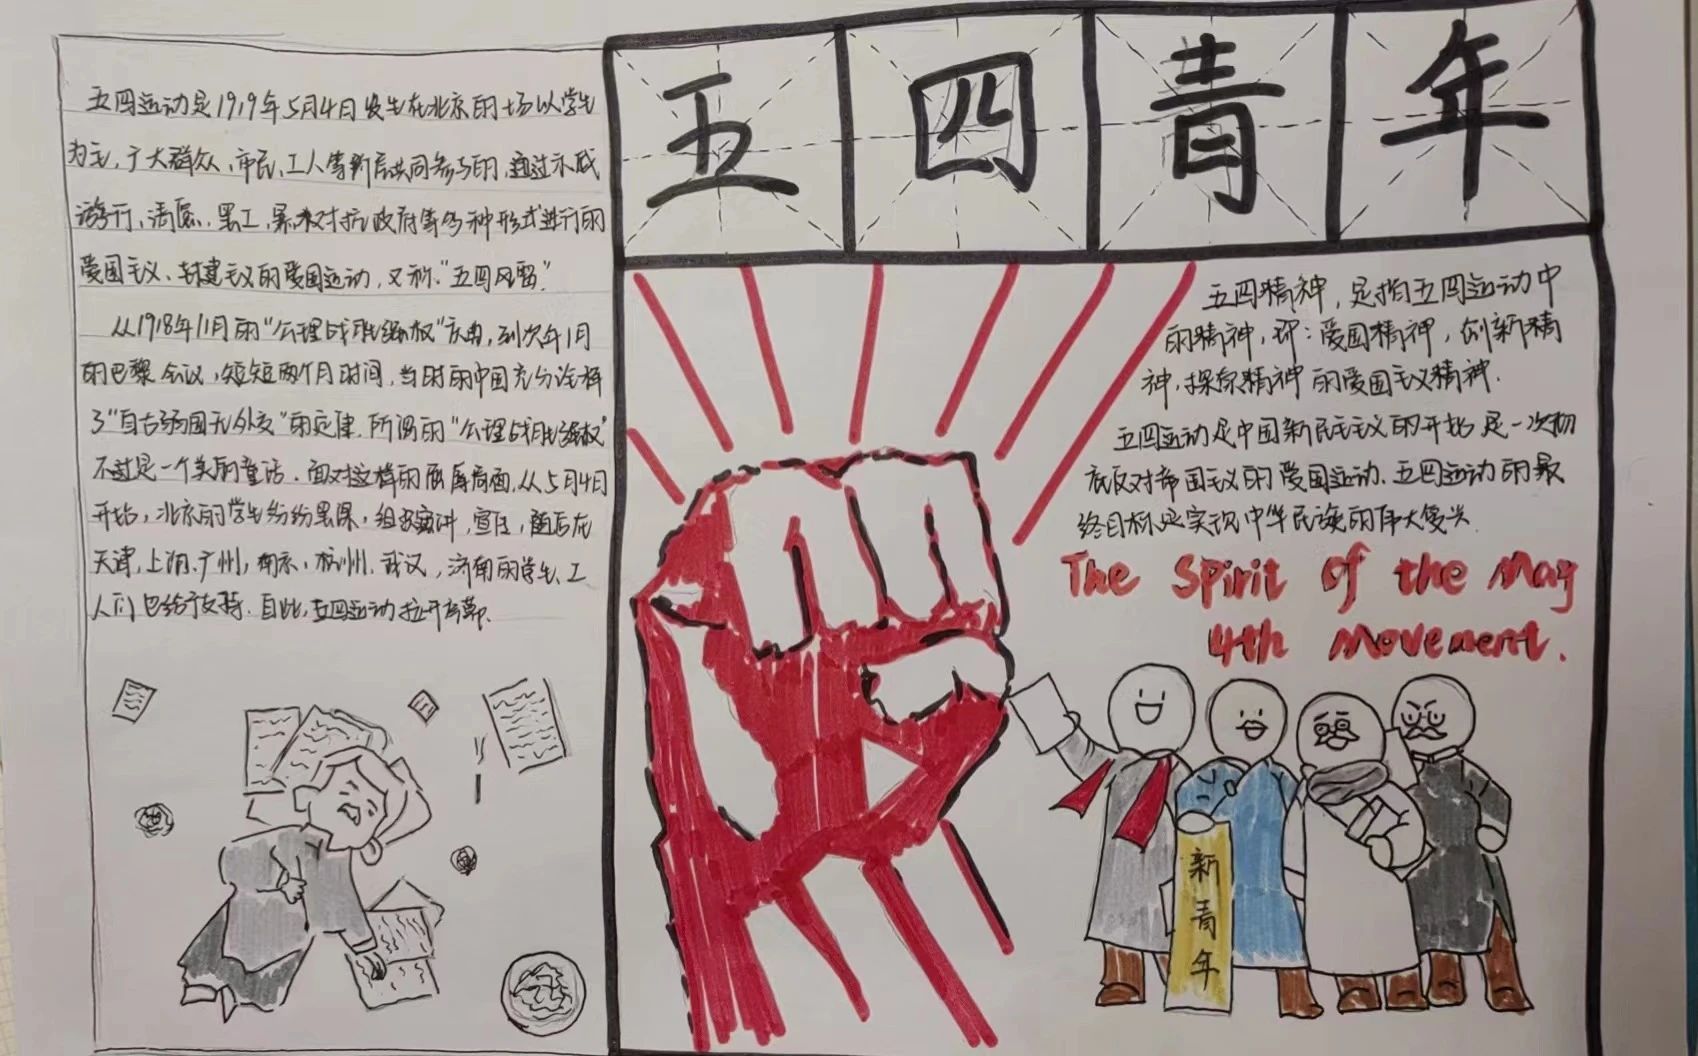 五四青年
五四运动是1919年5月4日发生在北京的一场以学生
为主,广大群众、市民、工人等阶层共同参与的,通过示威
游行、请愿、罢工、暴力对抗政府等多种形式进行的
爱国主义、封建主义的爱国运动,又称:"五四风雷".
从1918年11月的"公理战胜强权"庆典,到次年1月
的巴黎会议,短短两个月时间,当时的中国充分诠释
了"自古弱国无外交"的定律.所谓的"公理战胜强权"
不过是一个美丽的童话.面对这样的屈辱局面,从5月4日
开始,北京的学生纷纷罢课,组织演讲,宣传,随后在
天津,上海、广州,南京,杭州、武汉,济南的学生、工
人们也给予支持.自此,五四运动拉开序幕.
五四精神,是指五四运动中
的精神,即:爱国精神,创新精
神,探索精神的爱国主义精神.
五四运动是中国新民主主义的开始是一次彻
底反对帝国主义的爱国运动、五四运动的最
终目标是实现中华民族的伟大复兴.
The Spirit of the May
4th Movement.
新青年